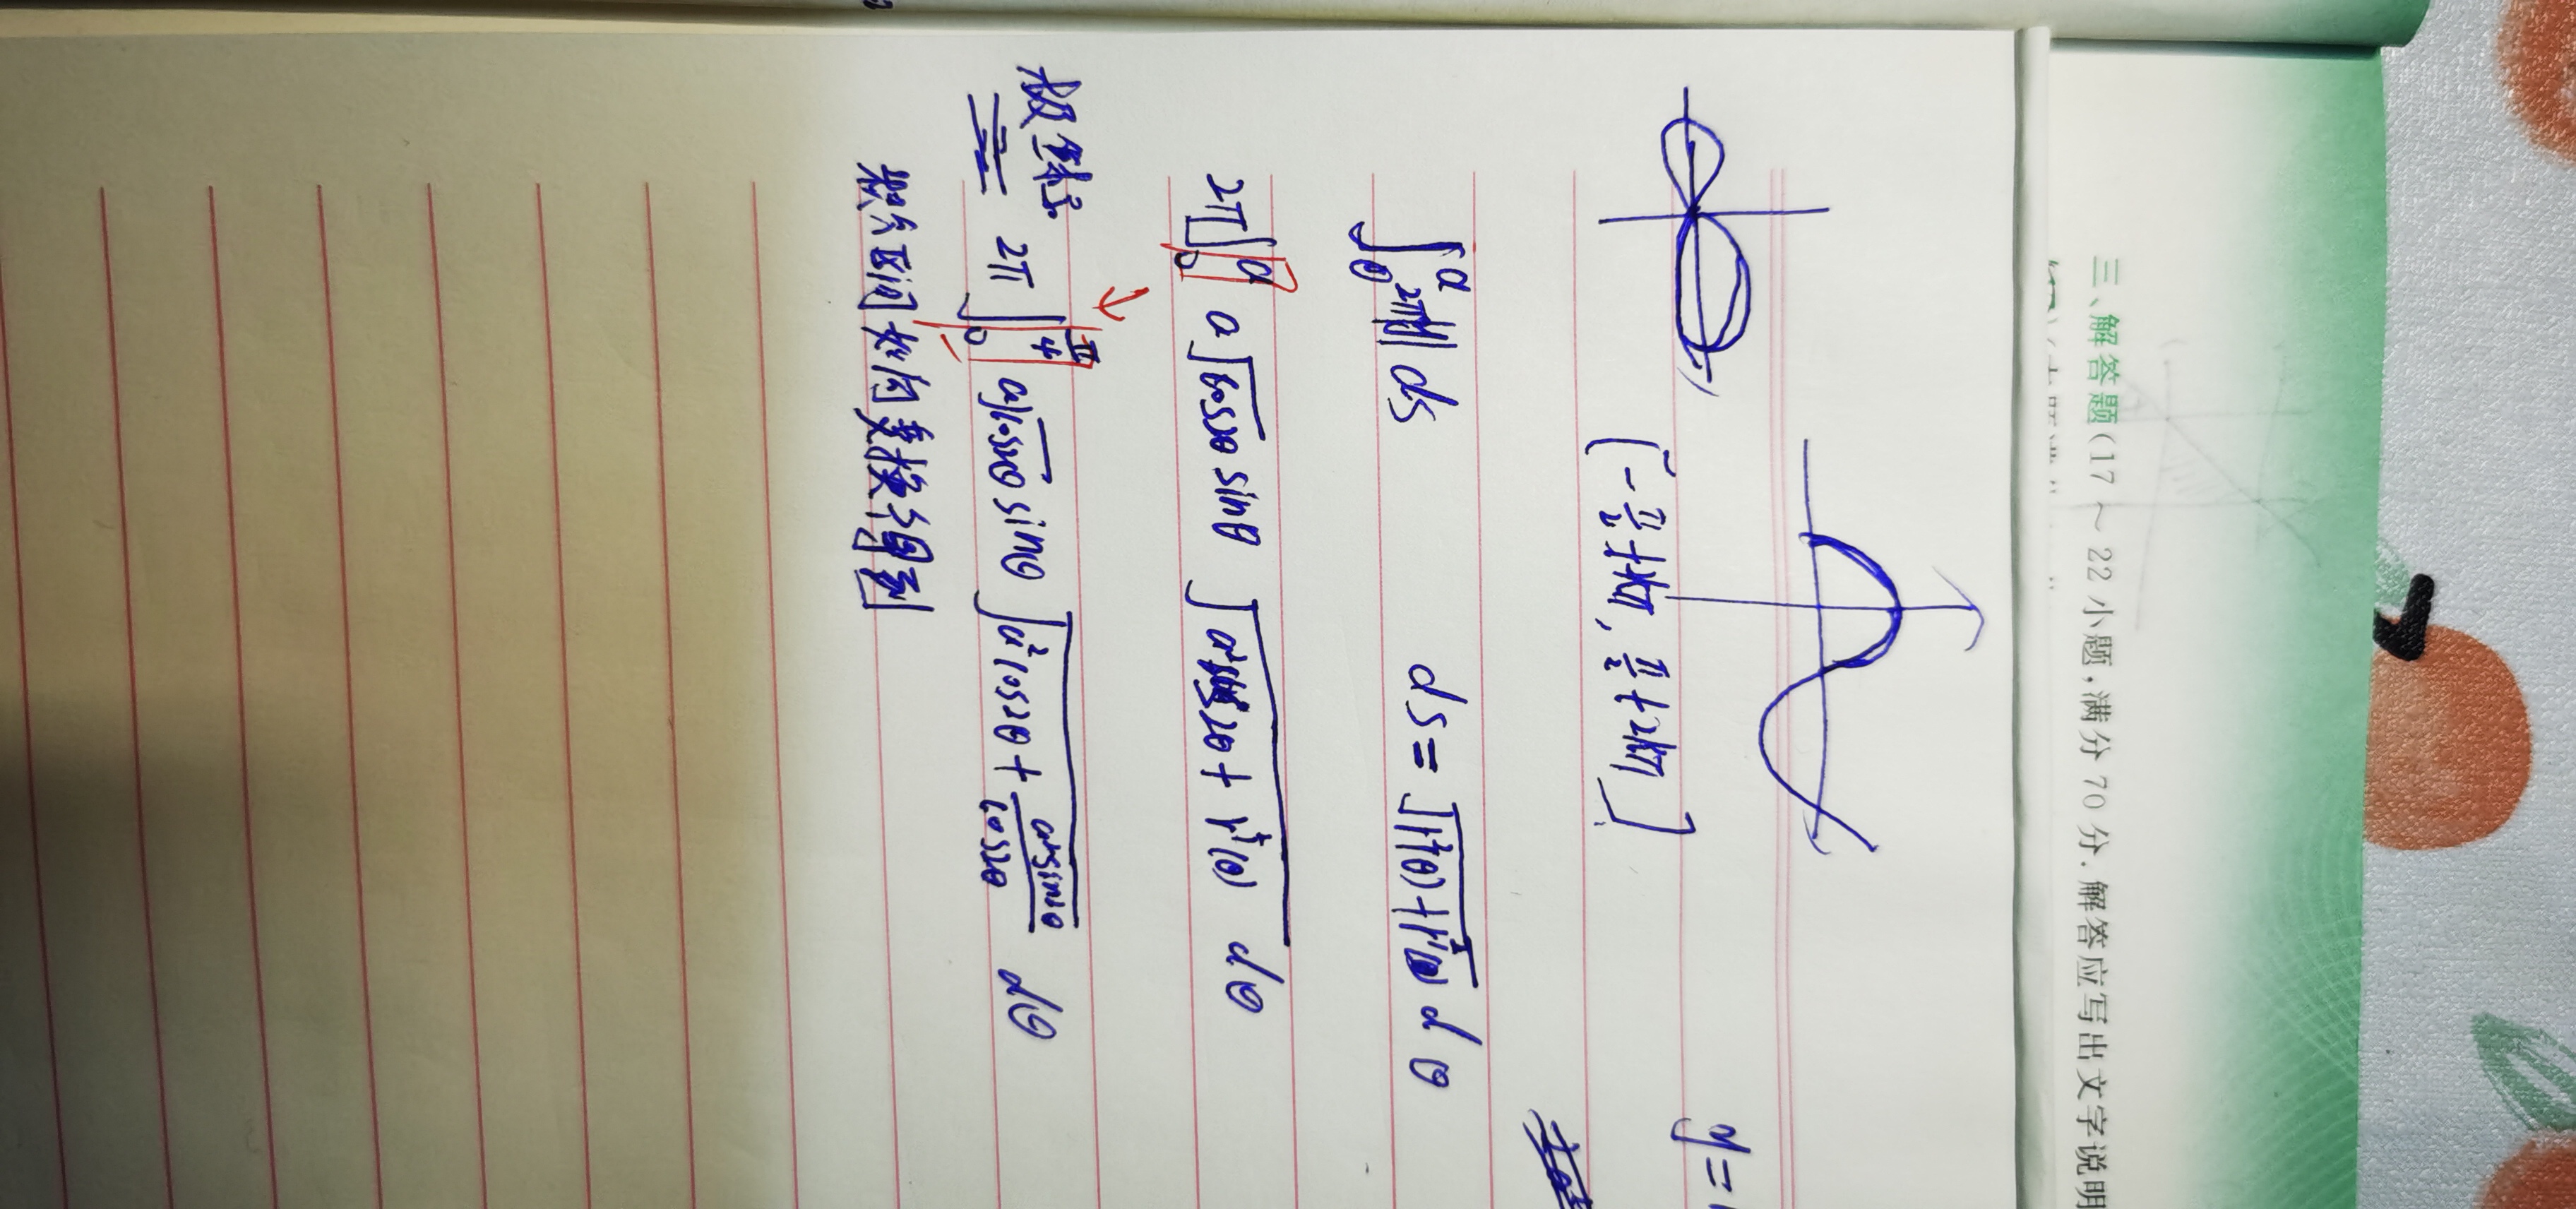 三、解答题(17～22小题,满分70分.解答应写出文字说明
y=
[-π/2+2kπ, π/2+2kπ]
∫₀ᵃ 2π|y| ds    ds=√(r²(θ)+r'²(θ)) dθ
2π∫₀ᵃ a√cos2θ sinθ √(a²cos2θ+r'²(θ)) dθ
极坐标 2π∫₀^(π/4) a√cos2θ sinθ √(a²cos2θ+a²sin²2θ/cos2θ) dθ
积分区间如何变换得到